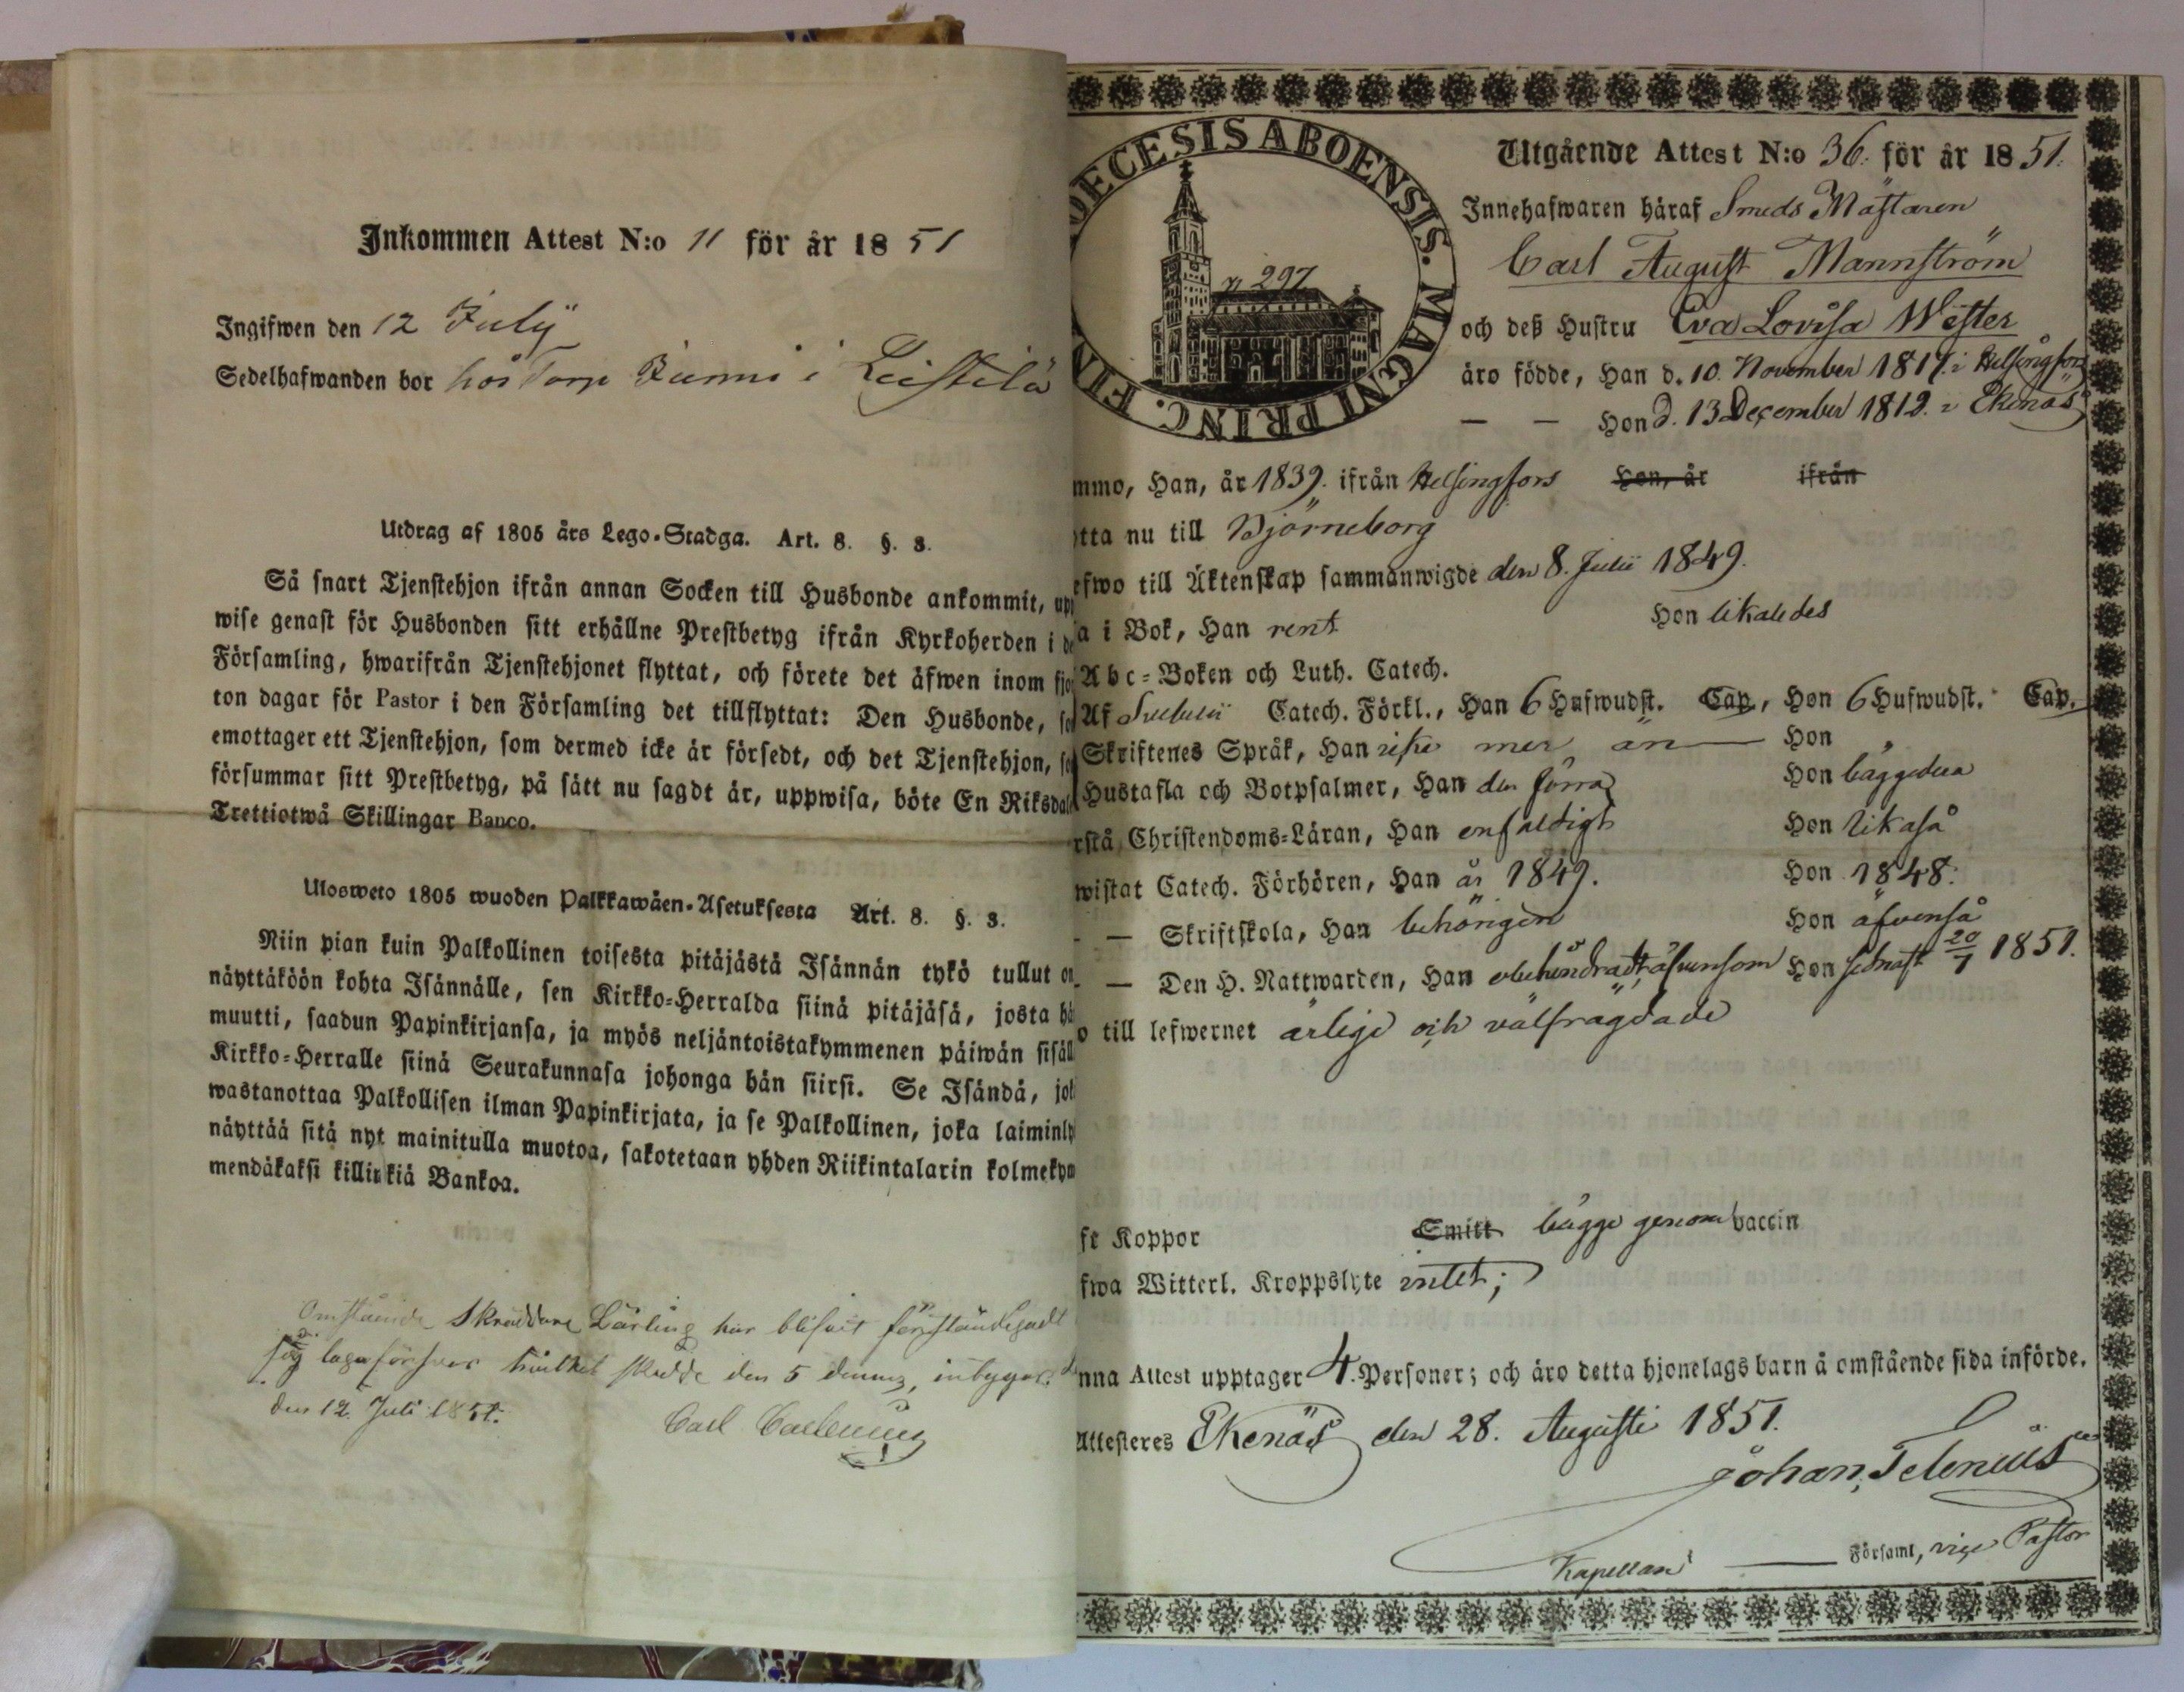 Inkommen Attest N:o 11 för år 1851
Ingifwen den 12 Julÿ
Sedelhafwanden bor hos Torp i Leistilä
Utdrag af 1805 års Lego-Stadga. Art. 8. §. 3.
Så snart Tjenstehjon ifrån annan Socken till Husbonde ankommit, upp
wise genast för Husbonden sitt erhållne Prestbetyg ifrån Kyrkoherden i de
Församling, hwarifrån Tjenstehjonet flyttat, och förete det äfwen inom fjor
ton dagar för Pastor i den Församling det tillflyttat: Den Husbonde, so
emottager ett Tjenstehjon, som dermed icke är försedt, och det Tjenstehjon, so
försummar sitt Prestbetyg, på sätt nu sagdt är, uppwisa, böte En Riksdal
Trettiotwå Skillingar Banco.
Ulosweto 1805 wuoden Palkkawäen-Asetuksesta Art. 8. §. 3.
Niin pian kuin Palkollinen toisesta pitäjästä Isännän tykö tullut on
näyttäköön kohta Isännälle, sen Kirkko-Herralda siinä pitäjäsä, josta hä
muutti, saadun Papinkirjansa, ja myös neljäntoistakymmenen päiwän sisäll
Kirkko-Herralle siinä Seurakunnasa johonga hän siirsi. Se Isändä, jok
wastanottaa Palkollisen ilman Papinkirjata, ja se Palkollinen, joka laiminly
näyttää sitä nyt mainitulla muotoa, sakotetaan yhden Riikintalarin kolmekym
mendäkaksi killinkiä Bankoa.
Omstående Skräddare Lärling har blifvit förständigadt
laga försvar hvilket skedde den 5 dennes,
den 12. Juli 1851.
Carl
DECESIS ABOENSIS. MAGNI PRINC. FIN
n 297
Utgående Attest N:o 36. för år 1851.
Innehafwaren häraf Smeds Mästaren
Carl August Mannström
och deß Hustru Eva Lovisa Wester
äro födde, Han d. 10. November 1817. i Helsingfors
— — Hon d. 13 December 1812. i Ekenäs
mmo, Han, år 1839. ifrån Helsingfors Hon, år ifrån
tta nu till Björneborg
efwo till Äktenskap sammanwigde den 8. Julii 1849.
a i Bok, Han rent Hon likaledes
Abc-Boken och Luth. Catech.
Af Svebelii Catech. Förkl., Han 6 Hufwudst. Cap., Hon 6 Hufwudst. Cap.
Skriftenes Språk, Han icke mer än — Hon „
Hustafla och Botpsalmer, Han den förra Hon baggedera
rstå Christendoms-Läran, Han enfaldigt Hon likaså
wistat Catech. Förhören, Han år 1849. Hon 1848.
- — Skriftskola, Han behörigen Hon äfvenså
- — Den H. Nattwarden, Han obehindradt, äfvensom Hon sednast 20/7 1851.
o till lefwernet ärlige och välfrägdade
ft Koppor Smitt bägge genom vaccin
fwa Witterl. Kroppslyte intet;
nna Attest upptager 4. Personer; och äro detta hjonelags barn å omstående sida införde.
Attesteres Ekenäs den 28. Augusti 1851.
Johan Telenius
Kapellan — Församl, vice Pastor